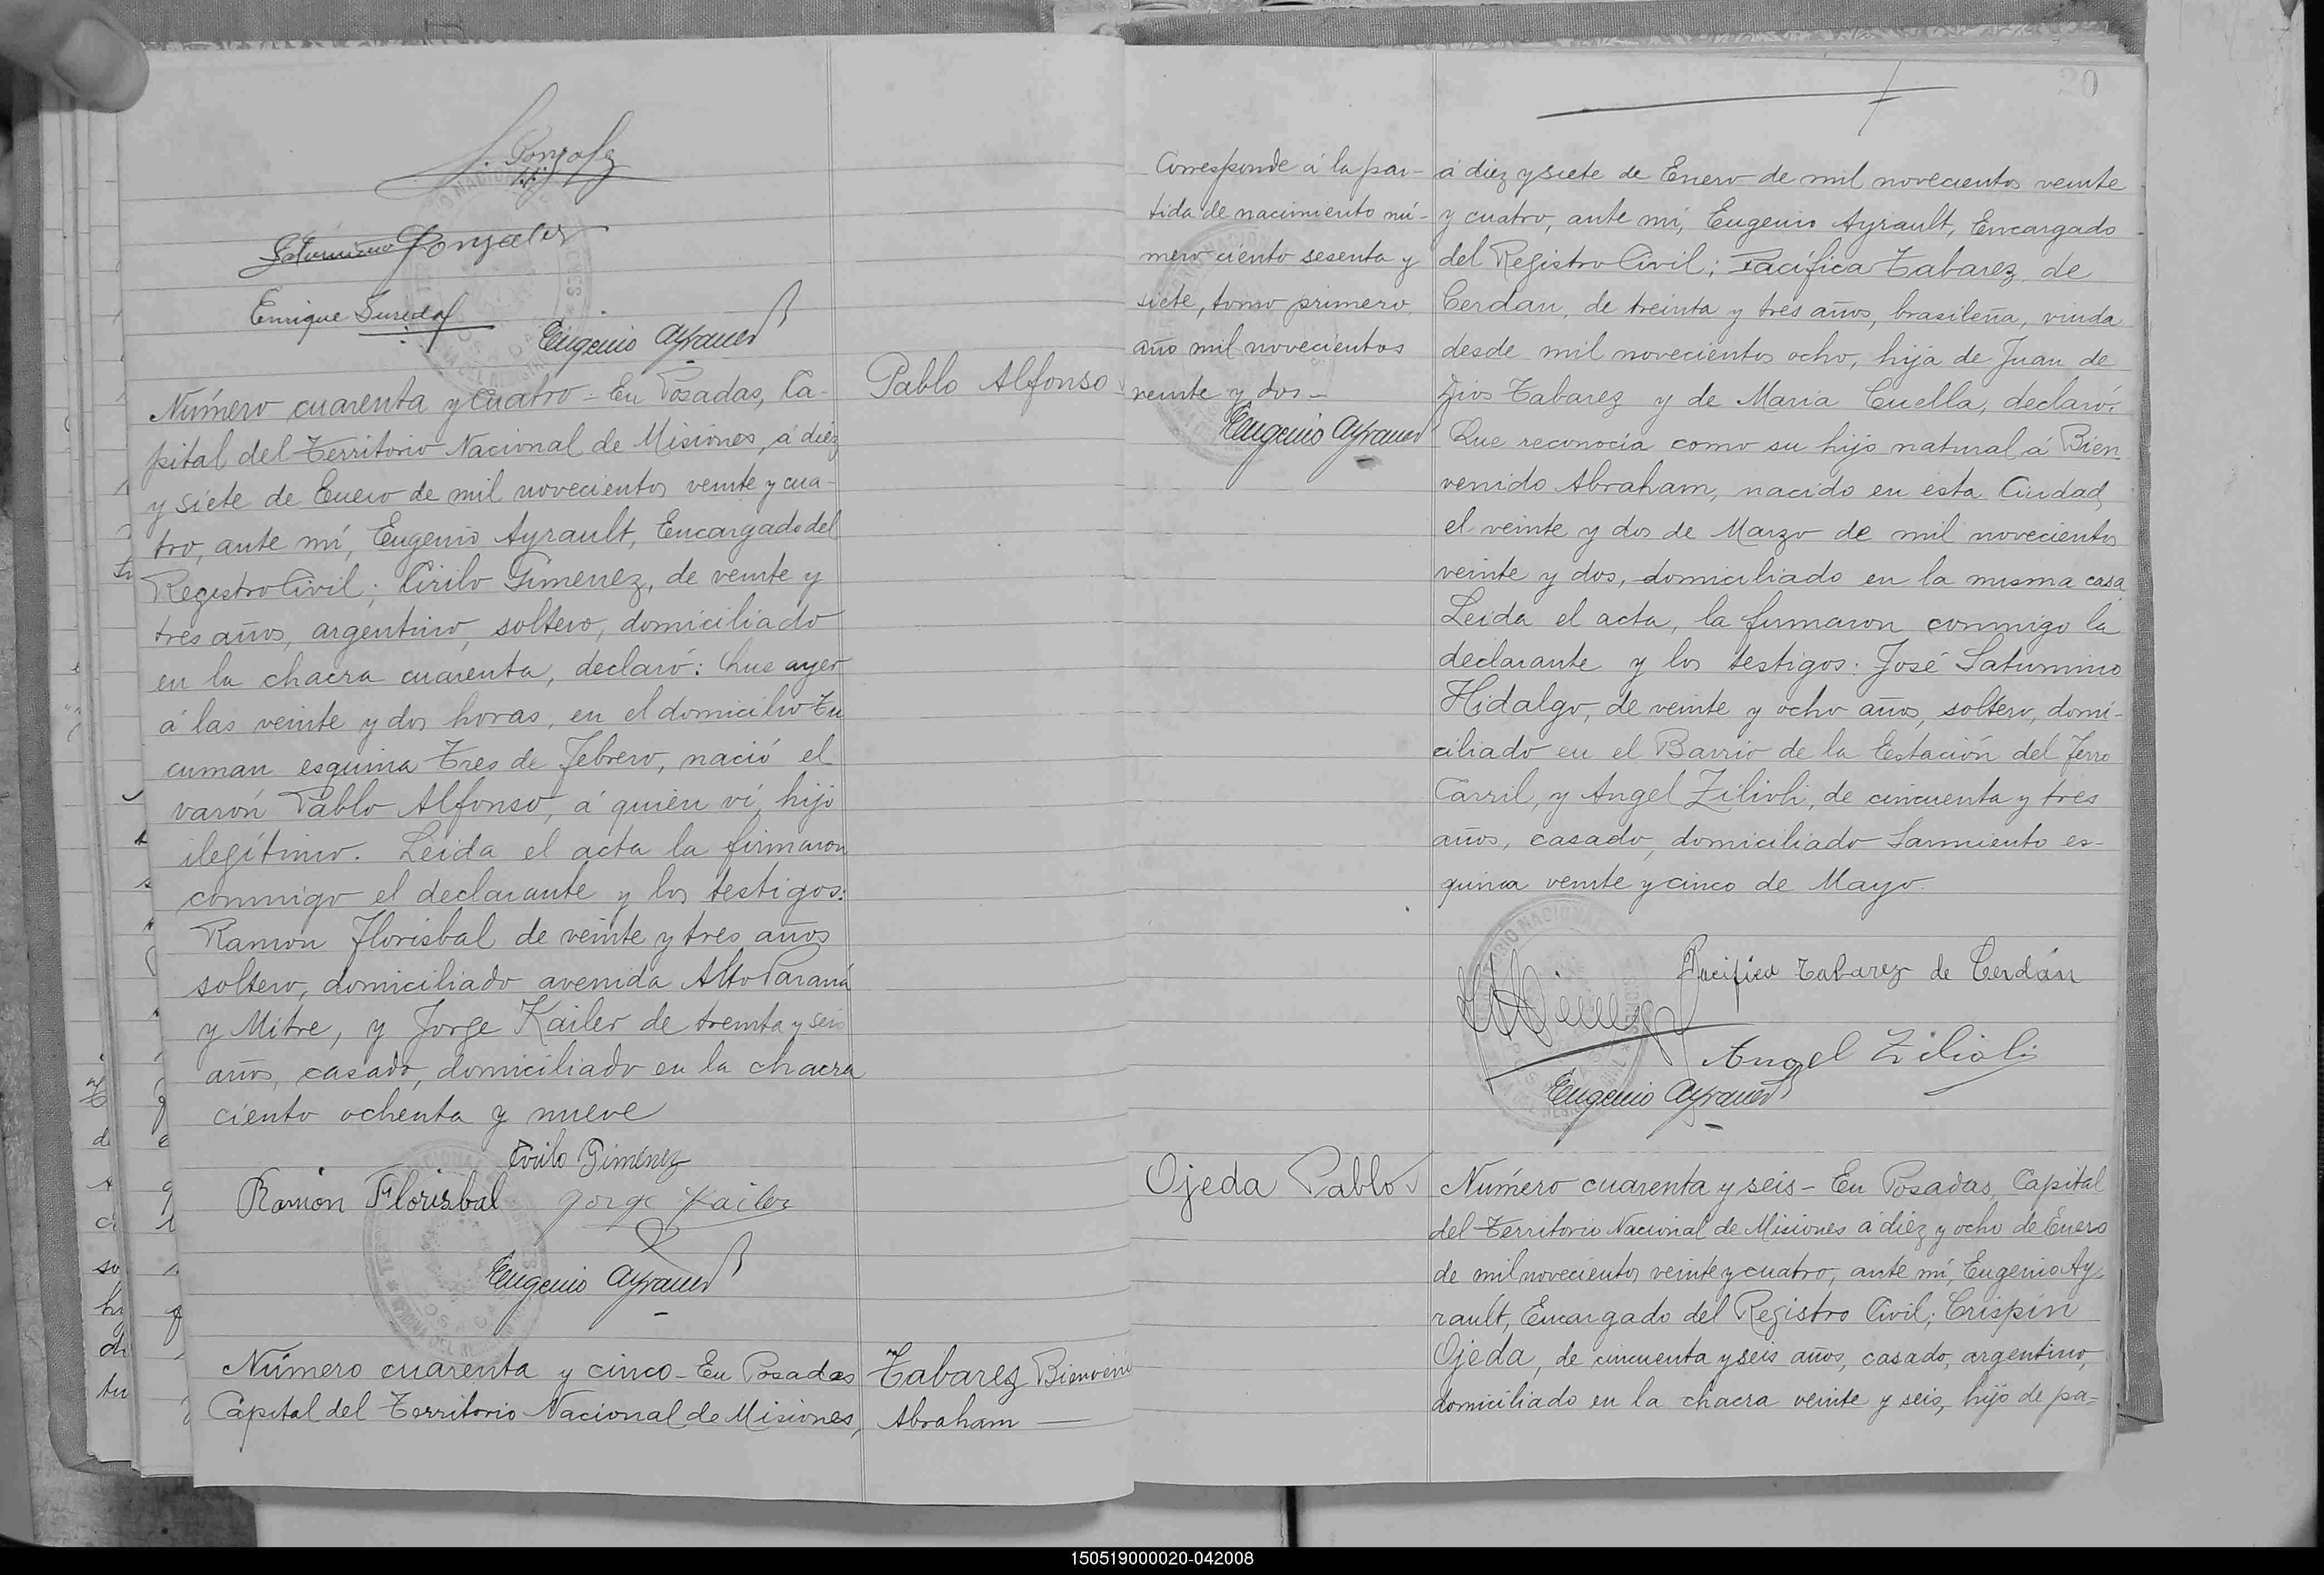 Gonzalez
Saturnino Gonzalez
Enrique Sureda
Eugenio Ayrault
Número cuarenta y cuatro = En Posadas, Ca-
pital del Territorio Nacional de Misiones, á diéz
y siete de Enero de mil novecientos veinte y cua-
tro, ante mí, Eugenio Ayrault, Encargado del
Registro Civil; Cirilo Gimenez, de veinte y
tres años, argentino, soltero, domiciliado
en la chacra cuarenta, declaró: Que ayer
á las veinte y dos horas, en el domicilio Tu
cuman esquina Tres de Febrero, nació el
varón Pablo Alfonso, á quien ví, hijo
ilegítimo. Leida el acta la firmaron
conmigo el declarante y los testigos:
Ramon Florisbal de veinte y tres años
soltero, domiciliado avenida Alto Paraná
y Mitre, y Jorge Kailer de treinta y seis
años, casado, domiciliado en la chacra
ciento ochenta y nueve
Cirilo Gimenez
Ramón Florisbal Jorge Kailer
Eugenio Ayrault
Número cuarenta y cinco - En Posadas
Capital del Territorio Nacional de Misiones,
Pablo Alfonso
Tabarez Bienveni
Abraham —
20
Corresponde á la par-
tida de nacimiento nú-
mero ciento sesenta y
siete, tomo primero
año mil novecientos
veinte y dos -
Eugenio Ayrault
á diez y siete de Enero de mil novecientos veinte
y cuatro, ante mí, Eugenio Ayrault, Encargado
del Registro Civil; Pacífica Tabarez de
Cerdan, de treinta y tres años, brasileña, viuda
desde mil novecientos ocho, hija de Juan de
Dios Tabarez y de Maria Cuella, declaró:
Que reconocía como su hijo natural á Bien
venido Abraham, nacido en esta Ciudad,
el veinte y dos de Marzo de mil novecientos
veinte y dos, domiciliado en la misma casa
Leida el acta, la firmaron conmigo la
declarante y los testigos: José Saturnino
Hidalgo, de veinte y ocho años, soltero, domi-
ciliado en el Barrio de la Estación del Ferro
Carril, y Angel Zilioli, de cincuenta y tres
años, casado, domiciliado Sarmiento es-
quina veinte y cinco de Mayo.
Pacifica Tabarez de Cerdán
Angel Zilioli
Eugenio Ayrault
Ojeda Pablo
Número cuarenta y seis - En Posadas, Capital
del Territorio Nacional de Misiones á diéz y ocho de Enero
de mil novecientos veinte y cuatro, ante mí, Eugenio Ay-
rault, Encargado del Registro Civil; Crispín
Ojeda, de cincuenta y seis años, casado, argentino,
domiciliado en la chacra veinte y seis, hijo de pa=
150519000020-042008